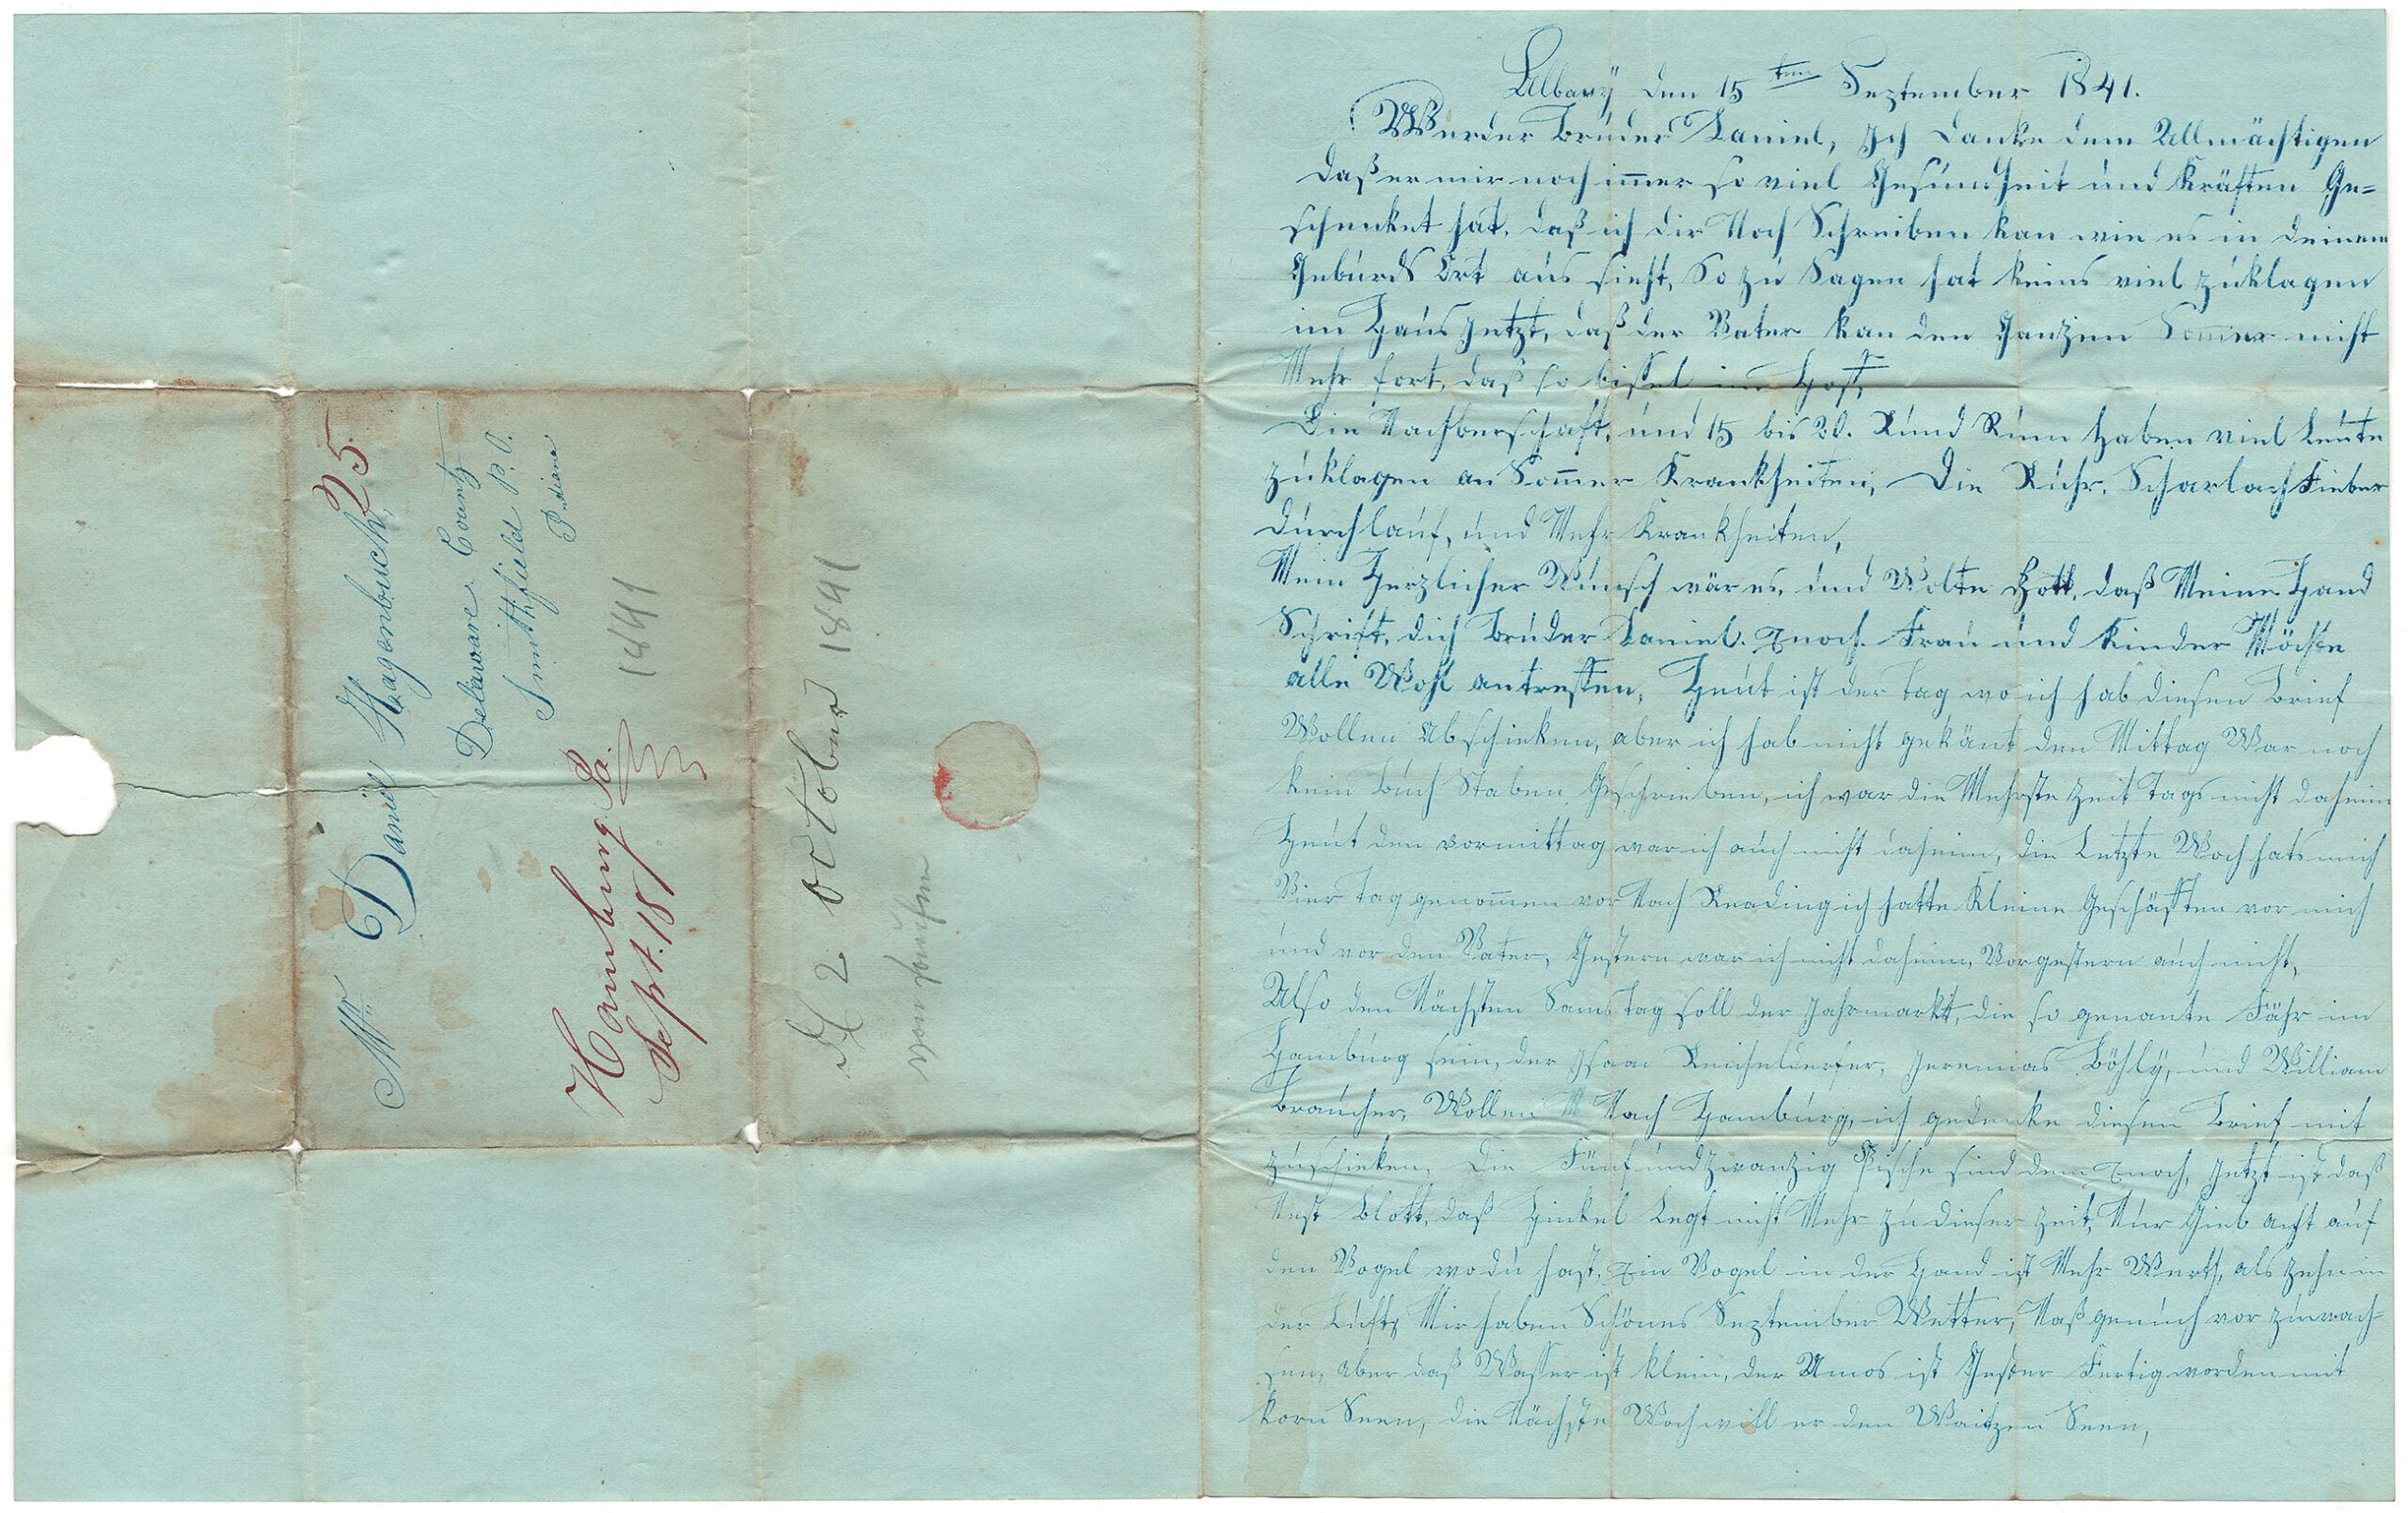 Mr. Daniel Hagenbuch,
25
Delaware County
Smithfield P.O.
Indiana
Hamburg Pa.
Sept. 18
1841
2 october 1841
Albany den 15ten September 1841.
Werder Bruder Daniel, Ich danke dem Allmächtigen
daß er mir noch imer so viel Gesundheit und Kräften Ge=
schenket hat, daß ich dir Noch Schreiben kan wie es in deinem
Geburds Ort aus sieht, So zu Sagen hat keins viel zuklagen
im Haus Jetzt, daß der Vater kan den Ganzen Sommer nicht
Mehr fort, daß so bissel im Hof,
Die Nachberschaft, und 15 bis 20. Rund Rum haben viel Leute
zuklagen an Sommer Krankheiten, Die Ruhr, Scharlach Fieber
durchlauf, und Mehr Krankheiten,
Mein Herzlicher Wunsch wär es, und Wolte Gott, daß Meine Hand
Schrift, dich Bruder Daniel. Enoch. Frau und Kinder Möchte
alle Wohl antreffen, Heut ist der Tag wo ich hab diesen Brief
Wollen Abschicken, aber ich hab nicht gekänt den Mittag War noch
kein Buch Staben Geschrieben, ich war die Mehrste Zeit Tags nicht daheim
Heut den vormittag war ich auch nicht daheim, die Letzte Woch hats mich
Vier Tag genommen vor Nach Reading ich hatte Kleine Geschäften vor mich
und vor den Vater, Gestern war ich nicht daheim, Vorgestern auch nicht,
Also den Nächsten Sams Tag soll der Jahrmarkt, die so genante Fähr in
Hamburg sein, der Isaac Reicheldерfer, Jeremias Böhly, und William
Braucher, Wollen Nach Hamburg, ich gedenke diesen Brief mit
zuschicken, Die Fünf und zwanzig sind dem Enoch, Jetzt ist daß
Nest Blott, daß Hinkel Legt nicht Mehr zu dieser Zeit, Nur Gieb acht auf
den Vogel wo du hast, Ein Vogel in der Hand ist Mehr Werth, als Zehn in
der Luft, Mir haben Schönes September Wetter, Naß genuch vor zu wach=
sen, aber daß Wasser ist klein, der Amos ist Gester Fertig worden mit
korn Seen, die Nächste Woch will er den Waitzen Seen,